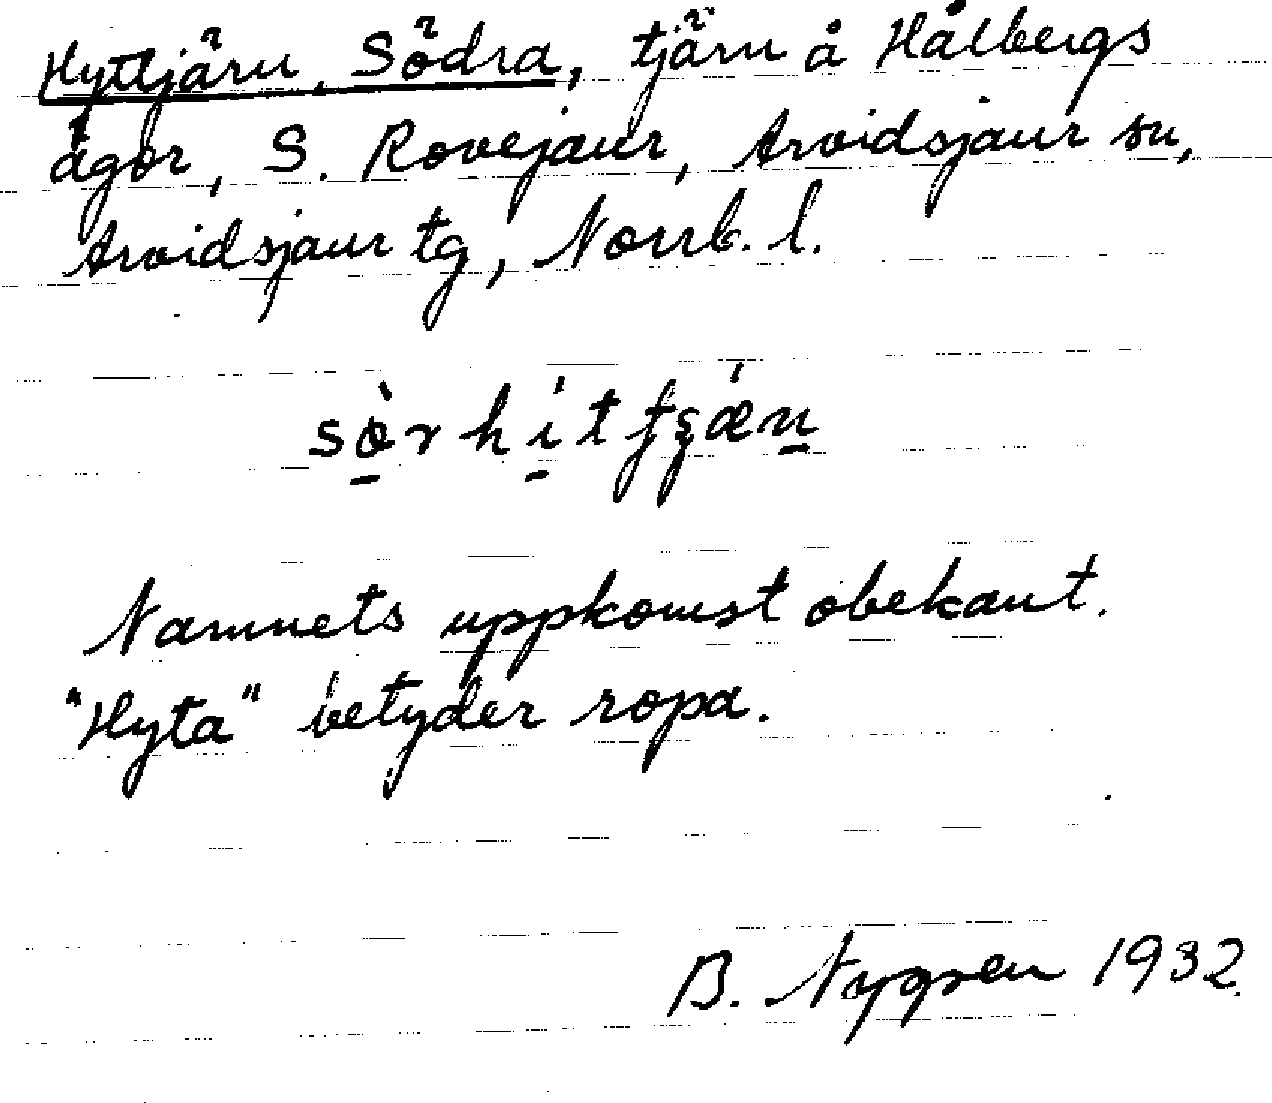 Hyttjärn, Södra, tjärn å Hålbergs
ägor, S. Rovejaur, Arvidsjaur sn,
Arvidsjaur tg, Norrb. l.
Namnets uppkomst obekant.
"Hyta" betyder ropa.
B. Nygren 1932.